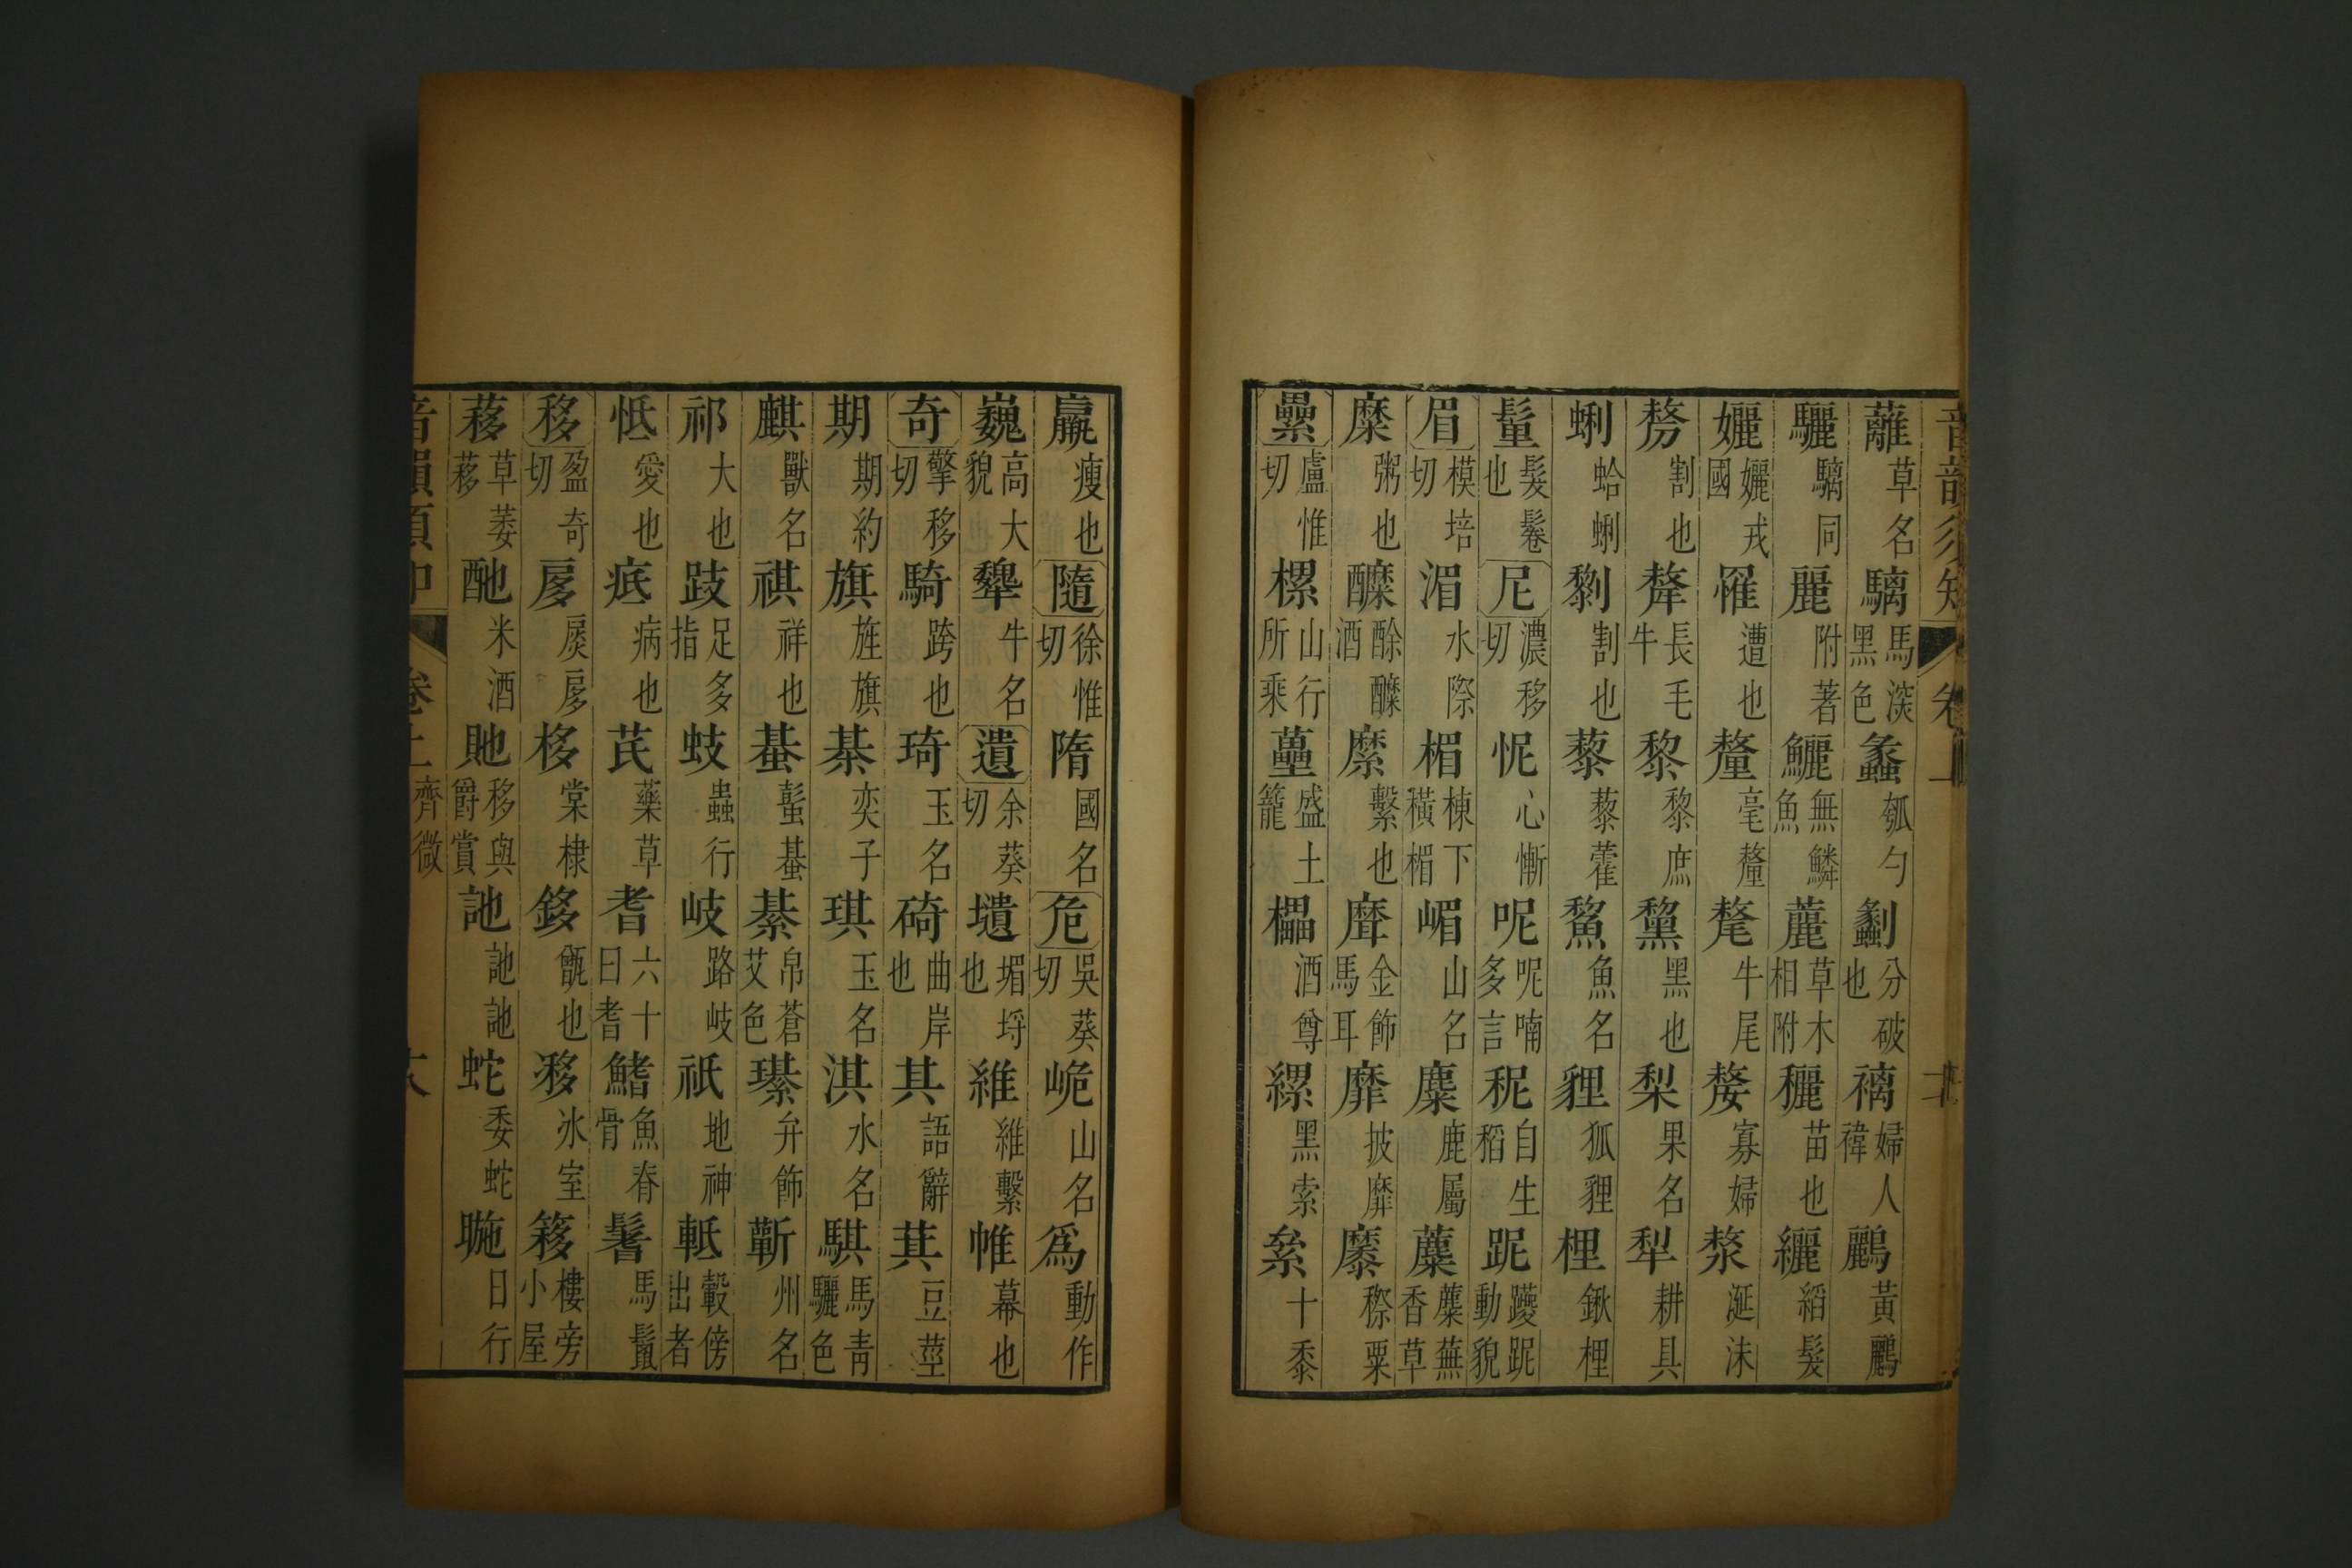 音韻須知 卷上
蘺草名驪馬淡黑色蠡瓠勺劙分破也褵婦人褘鸝黃鸝
驪騳同麗附著鱺無鱗魚蘪草木相附穲苗也纚縚髮
孋孋戎國罹遭也氂毫氂氂牛尾嫠寡婦漦涎沫
剺割也犛長毛牛黎黎庶黧黑也梨果名犁耕具
蜊蛤蜊剺割也藜藜藿鯬魚名狸狐狸梩鍬梩
髷髮鬈也尼濃移切怩心慚呢呢喃多言秜自生稻跜躨跜動貌
眉模培切湄水際楣棟下橫楣嵋山名麋鹿屬蘪蘪蕪香草
糜粥也醾酴醾酒縻繫也䩋金飾馬耳靡披靡穈穄粟
纍盧惟切樏山行所乘虆盛土籠櫑酒尊縲黑索絫十黍
羸瘦也隨徐惟切隋國名危吳葵切峗山名爲動作
巍高大貌犩牛名遺余葵切壝堳埒也維維繫帷幕也
奇擎移切騎跨也琦玉名碕曲岸也其語辭萁豆莖
期期約旗旌旗棊奕子琪玉名淇水名騏馬青驪色
麒獸名祺祥也蜝蟚蜝綦帛蒼艾色璂弁飾蘄州名
祁大也跂足多指蚑蟲行岐路岐祇地神軝轂傍出者
忯愛也疧病也芪藥草耆六十曰耆鰭魚脊骨鬐馬鬣
移盈奇切扅扊扅栘棠棣䤻甑也簃冰室簃樓旁小屋
蓩草萎蓩酏米酒貤移與爵賞訑訑訑蛇委蛇暆日行
音韻須知 卷上 齊微 六